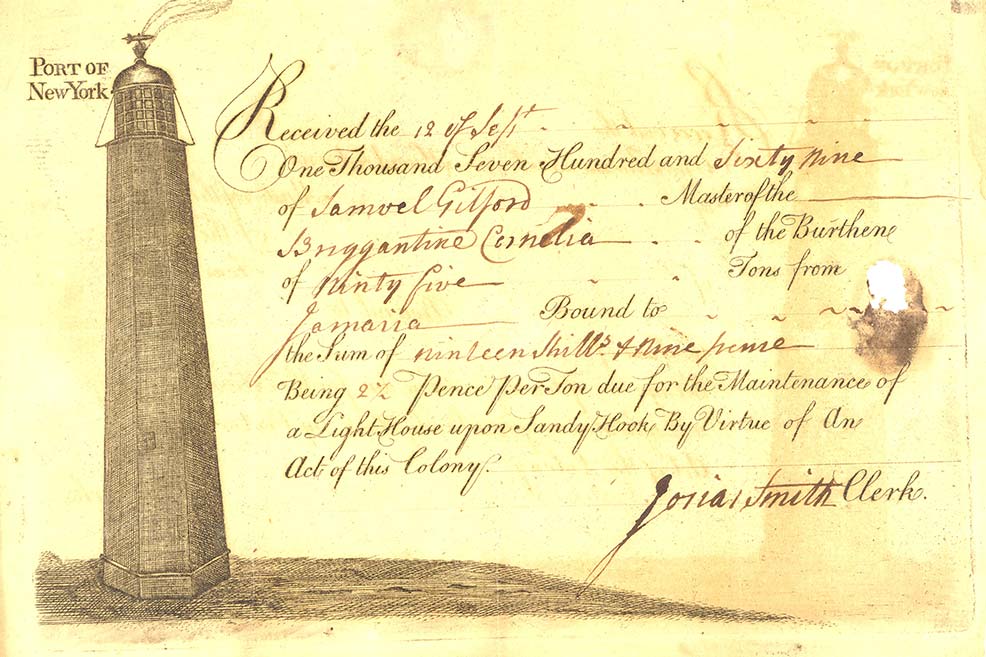 PORT OF
New York
Received the 12 of Sept
One Thousand Seven Hundred and Sixty Nine
of Samuel Gilford Master of the
Briggantine Cornelia of the Burthen
of Ninty five Tons from
Jamaica Bound to
the Sum of ninteen Shills & Nine pence
Being 2½ Pence Per Ton due for the Maintenance of
a Light House upon Sandy Hook By Virtue of An
Act of this Colony.
Josias Smith Clerk.